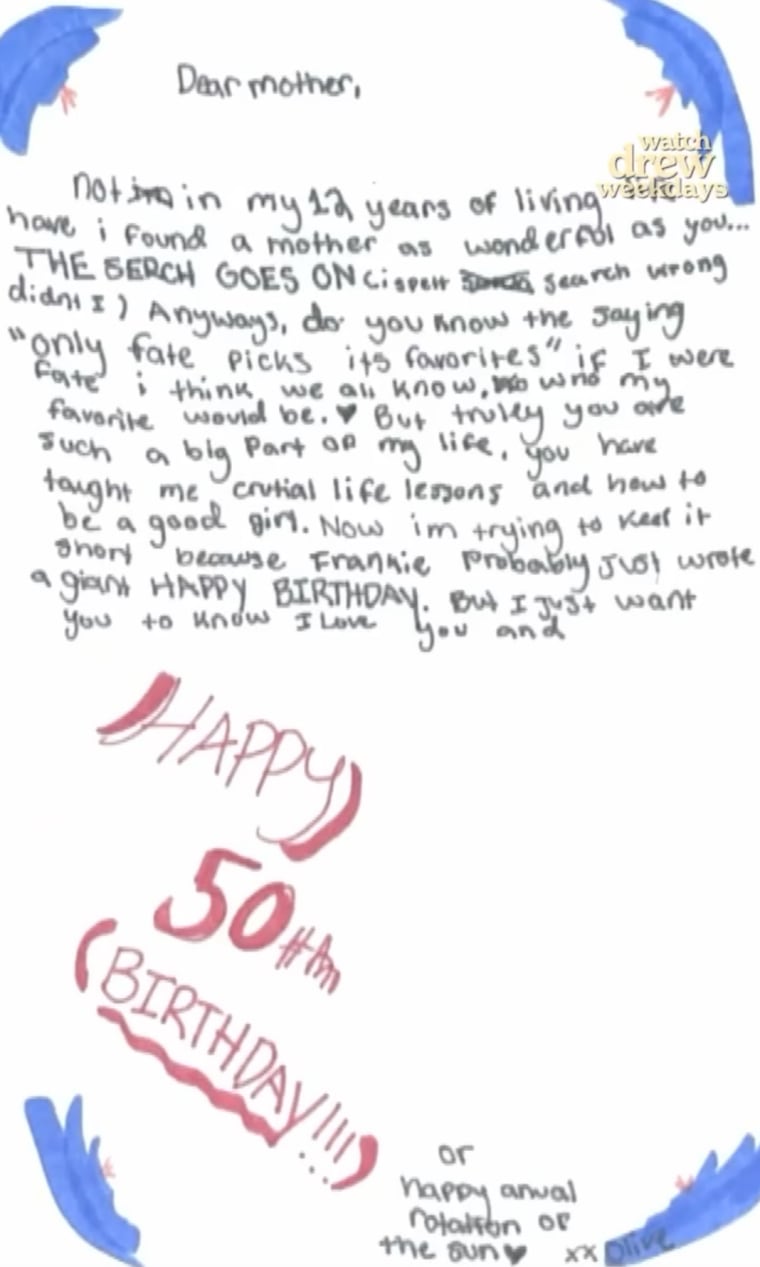 Dear mother,
watch
drew
weekdays
Not in my 12 years of living
have i found a mother as wonderful as you...
THE SERCH GOES ON (i spelt search wrong
didnt I) Anyways, do you know the saying
"only fate picks its favorites" if I were
Fate i think we all know, who my
favorite would be. ♥ But truley you are
such a big part of my life, you have
taught me crutial life lessons and how to
be a good girl. Now im trying to keep it
short because Frankie Probably just wrote
a giant HAPPY BIRTHDAY. But I just want
you to know I Love you and
HAPPY
50
(BIRTHDAY!!!)
or
happy anual
rotation of
the sun ♥ xx Olive